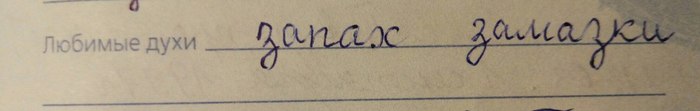 Любимые духи запах замазки